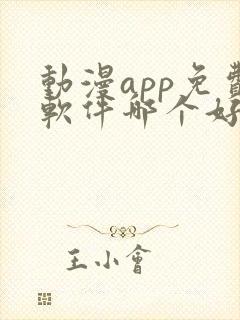 動漫app免費
軟件哪个好
王小會